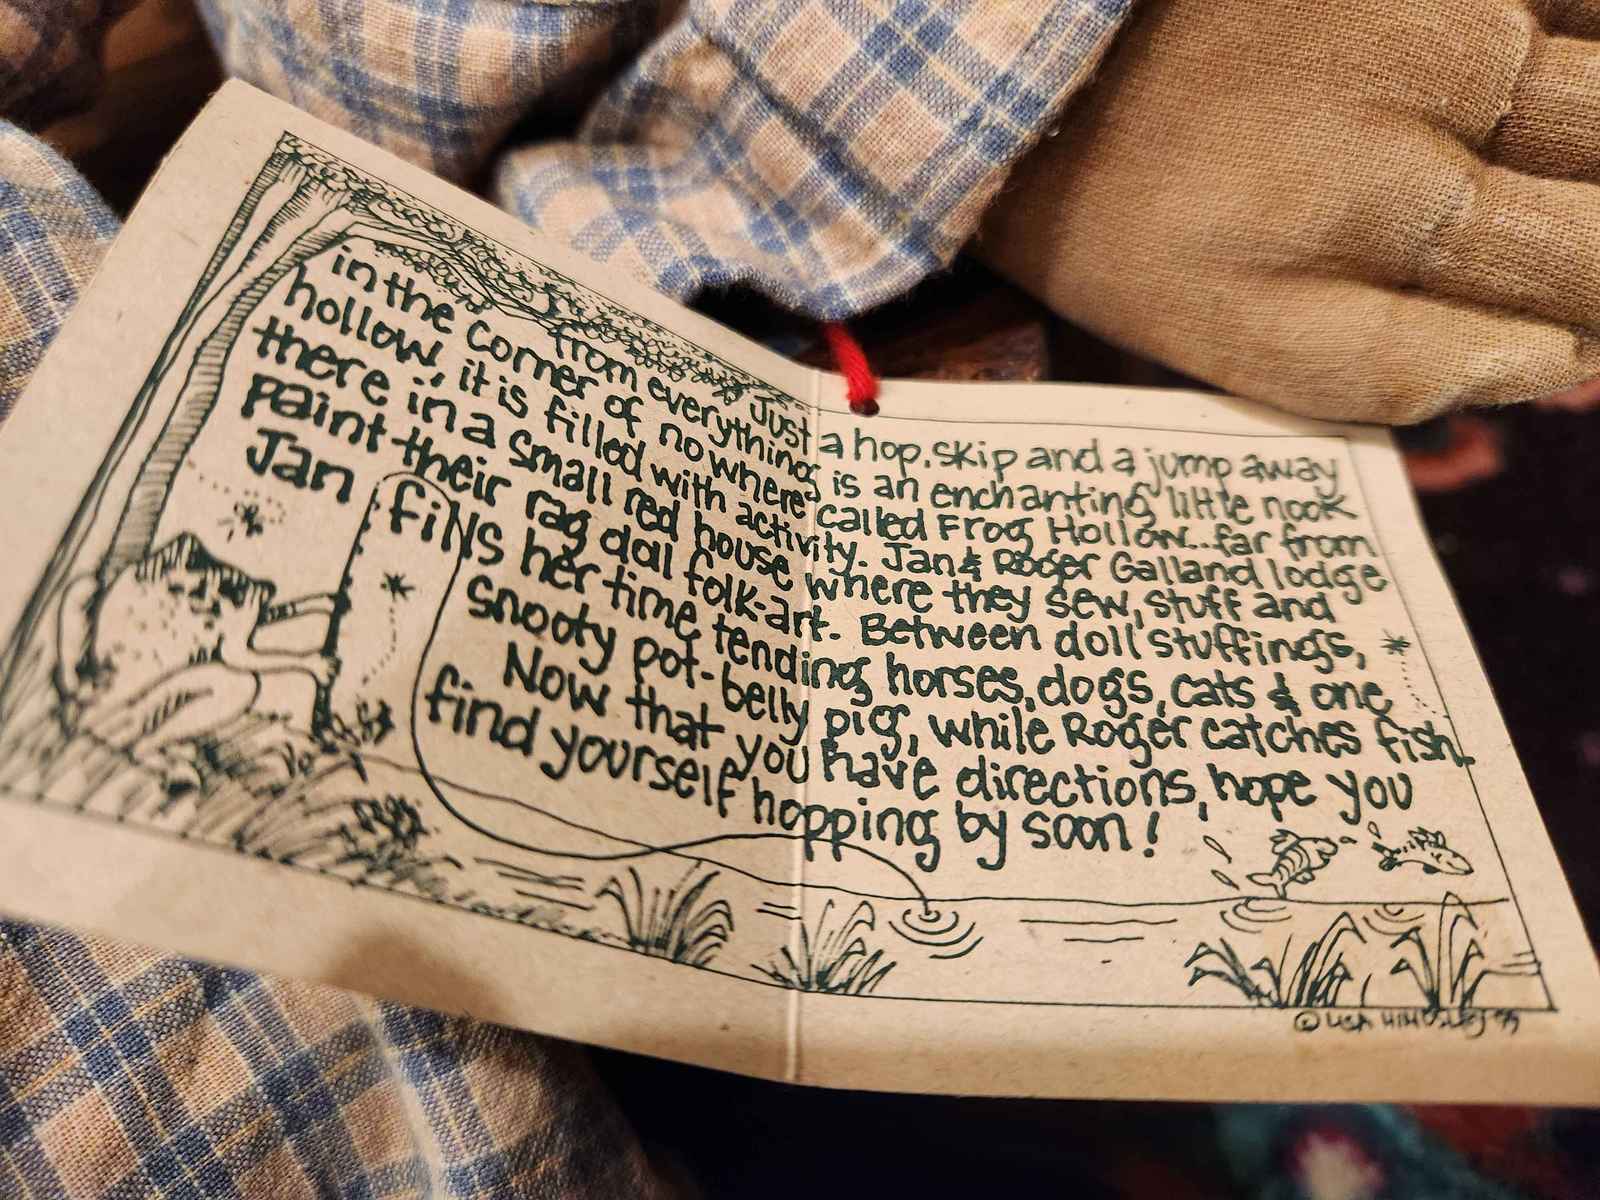 Just a hop, skip and a jump away
from everything is an enchanting little nook
in the corner of nowhere called Frog Hollow...far from
hollow, it is filled with activity. Jan & Roger Galland lodge
there in a small red house where they sew, stuff and
paint their rag doll folk-art. Between doll stuffings,
Jan fills her time tending horses, dogs, cats & one
snooty pot-belly pig, while Roger catches fish.
Now that you have directions, hope you
find yourself hopping by soon!
© Lisa